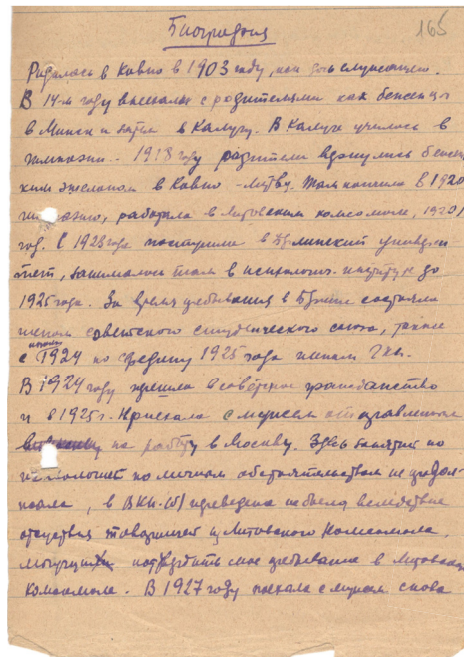 165
Биография
Родилась в Ковно в 1903 году, как дочь служащего.
В 14-м году выехала с родителями как беженцы
в Минск и затем в Калугу. В Калуге училась в
гимназии. 1918 году родители вернулись беженс-
ким эшелоном в Ковно - Литву. Там кончила в 1920
гимназию, работала в Литовском комсомоле, 1920/
год. С 1923 года поступила в Берлинский универси
тет, занималась там в психологич. институте до
1925 года. За время пребывания в Берлине состояла
членом советского студенческого союза, также
с 1924 по средину 1925 года членом
В 1924 году перешла в советское гражданство
и в 1925 г. приехала с мужем отправленном
на работу в Москву. Здесь занятий по
психологией по личным обстоятельствам не продол-
жала, в ВКП(б) переведена не была вследствие
отсутствия товарищей из Литовского Комсомола,
могущих подтвердить мое пребывание в Литовском
комсомоле. В 1927 году поехала с мужем снова